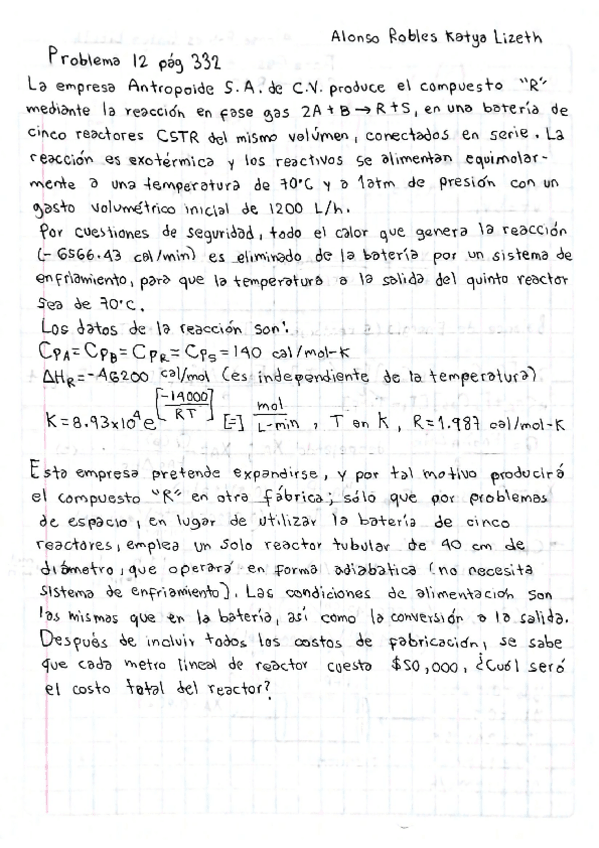 Alonso Robles Katya Lizeth
Problema 12 pág 332
La empresa Antropoide S.A. de C.V. produce el compuesto "R"
mediante la reacción en fase gas 2A + B → R + S, en una batería de
cinco reactores CSTR del mismo volúmen, conectados en serie. La
reacción es exotérmica y los reactivos se alimentan equimolar-
mente a una temperatura de 70°C y a 1atm de presión con un
gasto volumétrico inicial de 1200 L/h.
Por cuestiones de seguridad, todo el calor que genera la reacción
(-6566.43 cal/min) es eliminado de la batería por un sistema de
enfriamiento, para que la temperatura a la salida del quinto reactor
sea de 70°C.
Los datos de la reacción son:
CPA = CPB = CPR = CPS = 140 cal/mol-K
ΔHR = -46200 cal/mol (es independiente de la temperatura)
K = 8.93x10⁴ e^[-14000/RT] [=] mol/L-min , T en K, R = 1.987 cal/mol-K
Esta empresa pretende expandirse, y por tal motivo producirá
el compuesto "R" en otra fábrica; sólo que por problemas
de espacio, en lugar de utilizar la batería de cinco
reactores, emplea un solo reactor tubular de 40 cm de
diámetro, que operará en forma adiabatica (no necesita
sistema de enfriamiento). Las condiciones de alimentación son
las mismas que en la batería, así como la conversión a la salida.
Después de incluir todos los costos de fabricación, se sabe
que cada metro lineal de reactor cuesta $50,000, ¿Cuál será
el costo total del reactor?